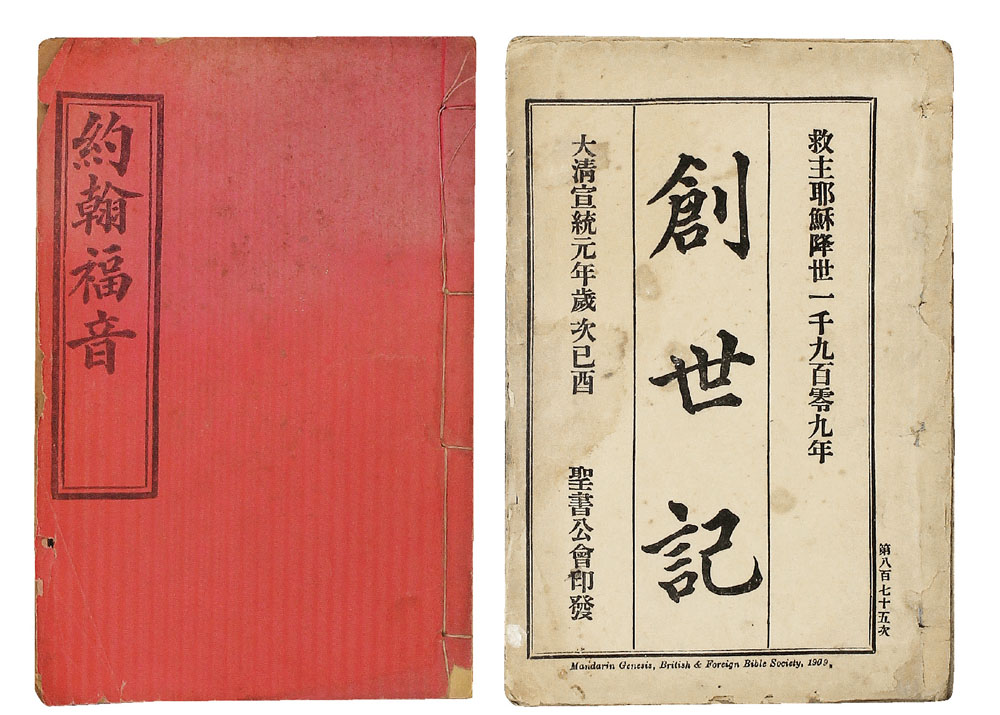 約翰福音
救主耶穌降世一千九百零九年
創世記
大清宣統元年歲次己酉
聖書公會印發
第八百七十五次
Mandarin Genesis, British & Foreign Bible Society, 1909.